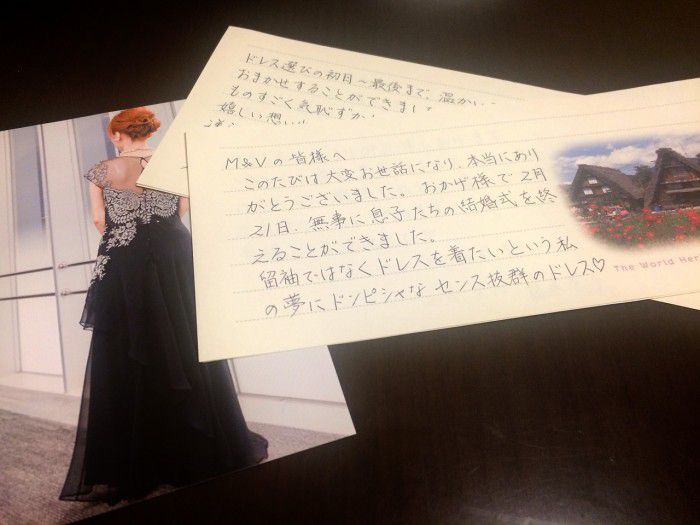 ドレス選びの初日～最後まで、温かい
おまかせすることができまし
ものすごく気恥ずか
嬉しい想い
M&Vの皆様へ
このたびは大変お世話になり、本当にあり
がとうございました。おかげ様で2月
21日、無事に息子たちの結婚式を終
えることができました。
留袖ではなくドレスを着たいという私
の夢にドンピシャなセンス抜群のドレス♡
The World Her